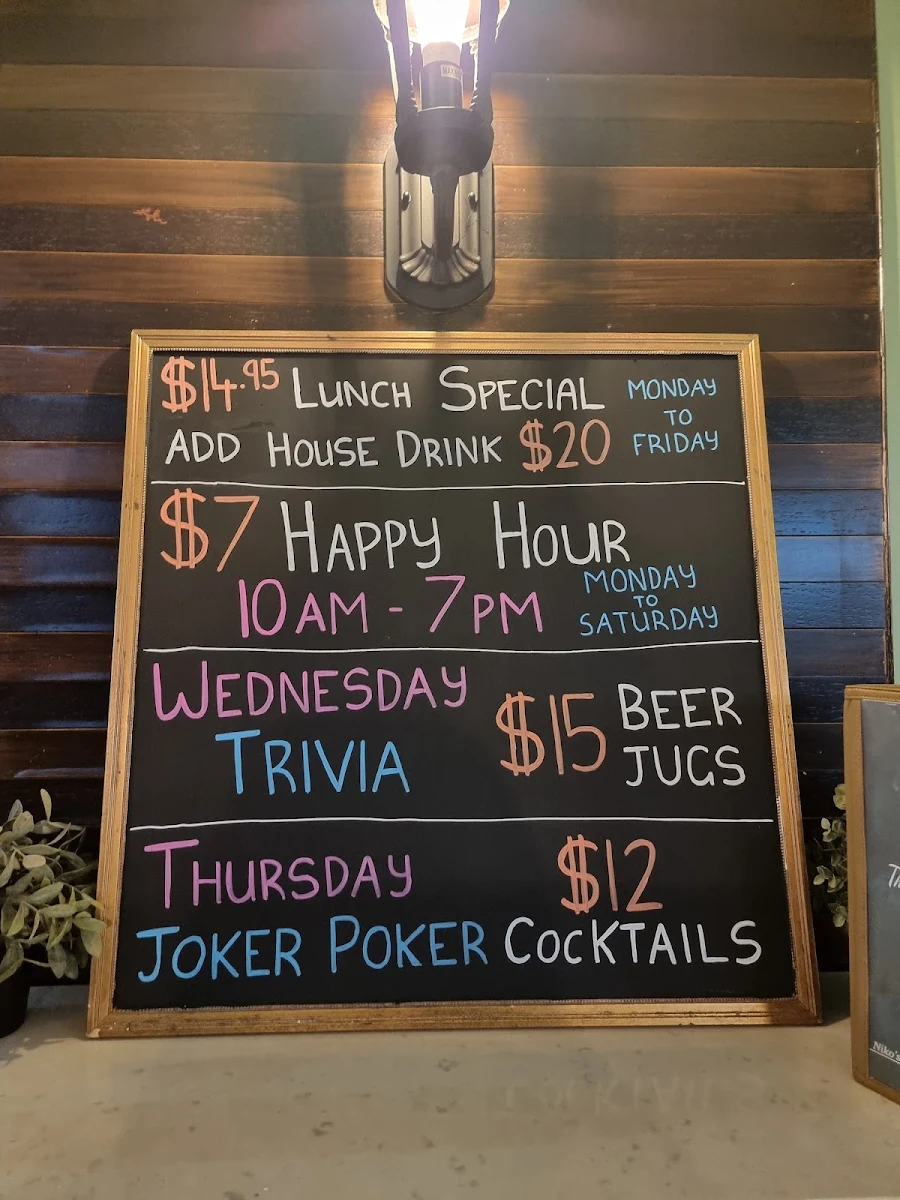 $14.95 LUNCH SPECIAL MONDAY TO FRIDAY
ADD HOUSE DRINK $20
$7 HAPPY HOUR
10AM - 7PM MONDAY TO SATURDAY
WEDNESDAY
TRIVIA
$15 BEER JUGS
THURSDAY
JOKER POKER
$12
COCKTAILS
Niko's